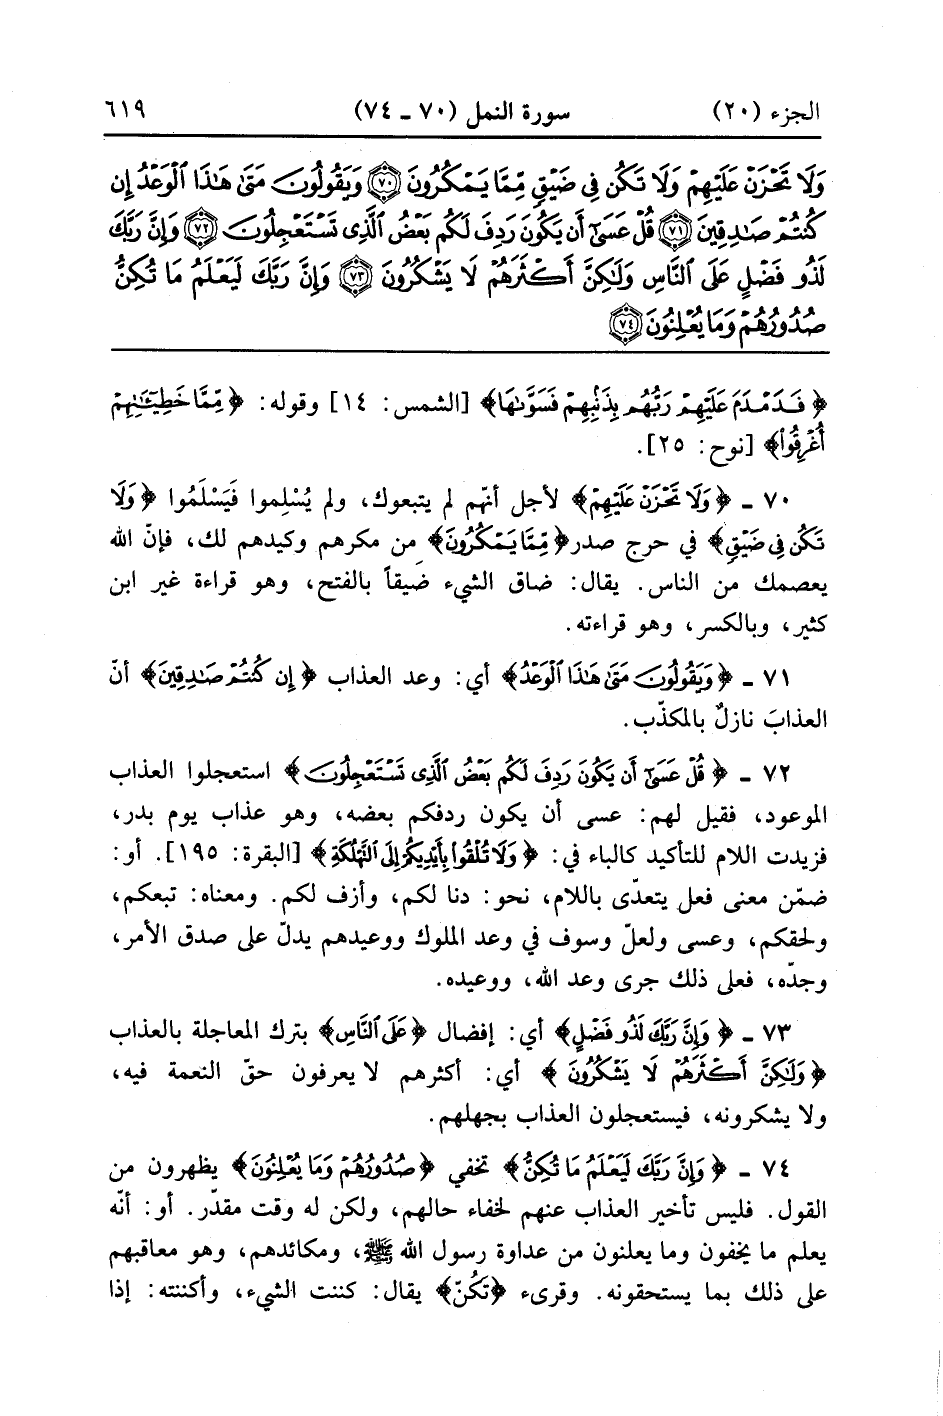 الجزء (٢٠) سورة النمل (٧٠ ـ ٧٤) ٦١٩
وَلَا تَحْزَنْ عَلَيْهِمْ وَلَا تَكُن فِى ضَيْقٍ مِّمَّا يَمْكُرُونَ ﴿٧٠﴾ وَيَقُولُونَ مَتَىٰ هَٰذَا ٱلْوَعْدُ إِن
كُنتُمْ صَٰدِقِينَ ﴿٧١﴾ قُلْ عَسَىٰٓ أَن يَكُونَ رَدِفَ لَكُم بَعْضُ ٱلَّذِى تَسْتَعْجِلُونَ ﴿٧٢﴾ وَإِنَّ رَبَّكَ
لَذُو فَضْلٍ عَلَى ٱلنَّاسِ وَلَٰكِنَّ أَكْثَرَهُمْ لَا يَشْكُرُونَ ﴿٧٣﴾ وَإِنَّ رَبَّكَ لَيَعْلَمُ مَا تُكِنُّ
صُدُورُهُمْ وَمَا يُعْلِنُونَ ﴿٧٤﴾
﴿فَدَمْدَمَ عَلَيْهِمْ رَبُّهُم بِذَنۢبِهِمْ فَسَوَّىٰهَا﴾ [الشمس: ١٤] وقوله: ﴿مِّمَّا خَطِيٓـَٰٔتِهِمْ
أُغْرِقُوا۟﴾ [نوح: ٢٥].
٧٠ ـ ﴿وَلَا تَحْزَنْ عَلَيْهِمْ﴾ لأجل أنّهم لم يتبعوك، ولم يُسْلِموا فَيَسْلَمُوا ﴿وَلَا
تَكُن فِى ضَيْقٍ﴾ في حرج صدر ﴿مِّمَّا يَمْكُرُونَ﴾ مِن مكرهم وكيدهم لك، فإنّ الله
يعصمك من الناس. يقال: ضاق الشيء ضَيقاً بالفتح، وهو قراءة غير ابن
كثير، وبالكسر، وهو قراءته.
٧١ ـ ﴿وَيَقُولُونَ مَتَىٰ هَٰذَا ٱلْوَعْدُ﴾ أي: وعد العذاب ﴿إِن كُنتُمْ صَٰدِقِينَ﴾ أنّ
العذابَ نازلٌ بالمكذّب.
٧٢ ـ ﴿قُلْ عَسَىٰٓ أَن يَكُونَ رَدِفَ لَكُم بَعْضُ ٱلَّذِى تَسْتَعْجِلُونَ﴾ استعجلوا العذاب
الموعود، فقيل لهم: عسى أن يكون ردفكم بعضه، وهو عذاب يوم بدر،
فزيدت اللام للتأكيد كالباء في: ﴿وَلَا تُلْقُوا۟ بِأَيْدِيكُمْ إِلَى ٱلتَّهْلُكَةِ﴾ [البقرة: ١٩٥]. أو:
ضمّن معنى فعل يتعدّى باللام، نحو: دنا لكم، وأزف لكم. ومعناه: تبعكم،
ولحقكم، وعسى ولعلّ وسوف في وعد الملوك ووعيدهم يدلّ على صدق الأمر،
وجدّه، فعلى ذلك جرى وعد الله، ووعيده.
٧٣ ـ ﴿وَإِنَّ رَبَّكَ لَذُو فَضْلٍ﴾ أي: إفضال ﴿عَلَى ٱلنَّاسِ﴾ بترك المعاجلة بالعذاب
﴿وَلَٰكِنَّ أَكْثَرَهُمْ لَا يَشْكُرُونَ﴾ أي: أكثرهم لا يعرفون حقّ النعمة فيه،
ولا يشكرونه، فيستعجلون العذاب بجهلهم.
٧٤ ـ ﴿وَإِنَّ رَبَّكَ لَيَعْلَمُ مَا تُكِنُّ﴾ تخفي ﴿صُدُورُهُمْ وَمَا يُعْلِنُونَ﴾ يظهرون من
القول. فليس تأخير العذاب عنهم لخفاء حالهم، ولكن له وقت مقدّر. أو: أنّه
يعلم ما يخفون وما يعلنون من عداوة رسول الله ﷺ، ومكائدهم، وهو معاقبهم
على ذلك بما يستحقونه. وقرىء ﴿تَكُنّ﴾ يقال: كننت الشيء، وأكننته: إذا